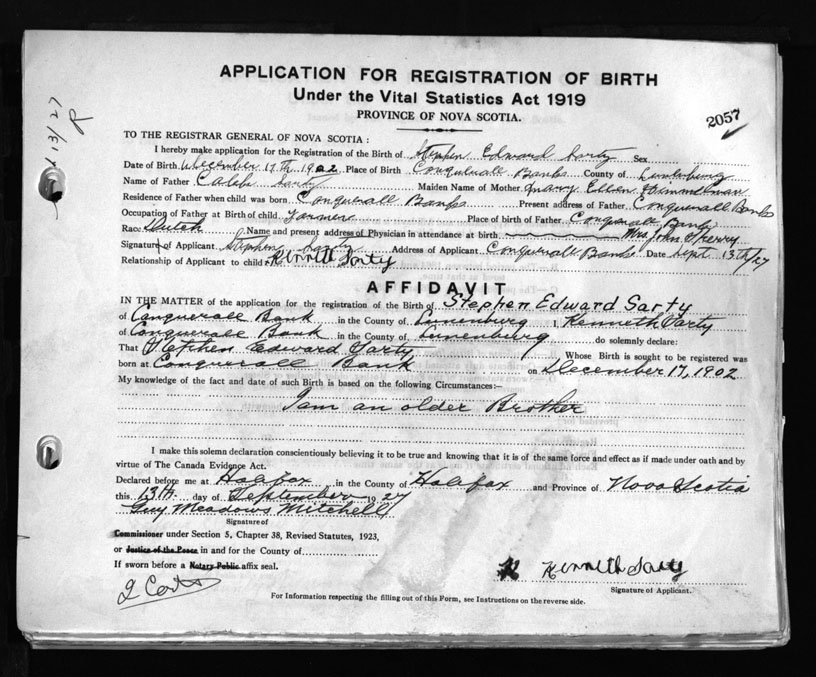 APPLICATION FOR REGISTRATION OF BIRTH
Under the Vital Statistics Act 1919
PROVINCE OF NOVA SCOTIA.
2057
13/27
TO THE REGISTRAR GENERAL OF NOVA SCOTIA :
I hereby make application for the Registration of the Birth of Stephen Edward Sarty Sex
Date of Birth December 17th 1902 Place of Birth Conquerall Banks County of Lunenburg
Name of Father Caleb Sarty Maiden Name of Mother Mary Ellen Himmelman
Residence of Father when child was born Conquerall Banks Present address of Father Conquerall Banks
Occupation of Father at Birth of child Farmer Place of birth of Father Conquerall Banks
Race Dutch Name and present address of Physician in attendance at birth Mrs John
Signature of Applicant Stephen Sarty Address of Applicant Conquerall Banks Date Sept 13th/27
Relationship of Applicant to child Kenneth Sarty
AFFIDAVIT
IN THE MATTER of the application for the registration of the Birth of Stephen Edward Sarty
of Conquerall Bank in the County of Lunenburg I, Kenneth Sarty
of Conquerall Bank in the County of Lunenburg do solemnly declare:
That Stephen Edward Sarty Whose Birth is sought to be registered was
born at Conquerall Bank on December 17, 1902
My knowledge of the fact and date of such Birth is based on the following Circumstances:—
I am an older Brother
I make this solemn declaration conscientiously believing it to be true and knowing that it is of the same force and effect as if made under oath and by
virtue of The Canada Evidence Act.
Declared before me at Halifax in the County of Halifax and Province of Nova Scotia
this 13th day of September 1927
Guy Meadows Mitchell
Signature of
Commissioner under Section 5, Chapter 38, Revised Statutes, 1923,
or Justice of the Peace in and for the County of
If sworn before a Notary Public affix seal.
K Kenneth Sarty
Signature of Applicant.
For Information respecting the filling out of this Form, see Instructions on the reverse side.